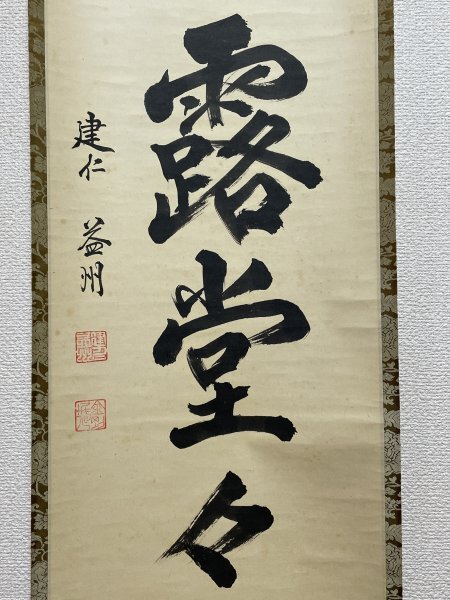 露堂々
建仁 益州